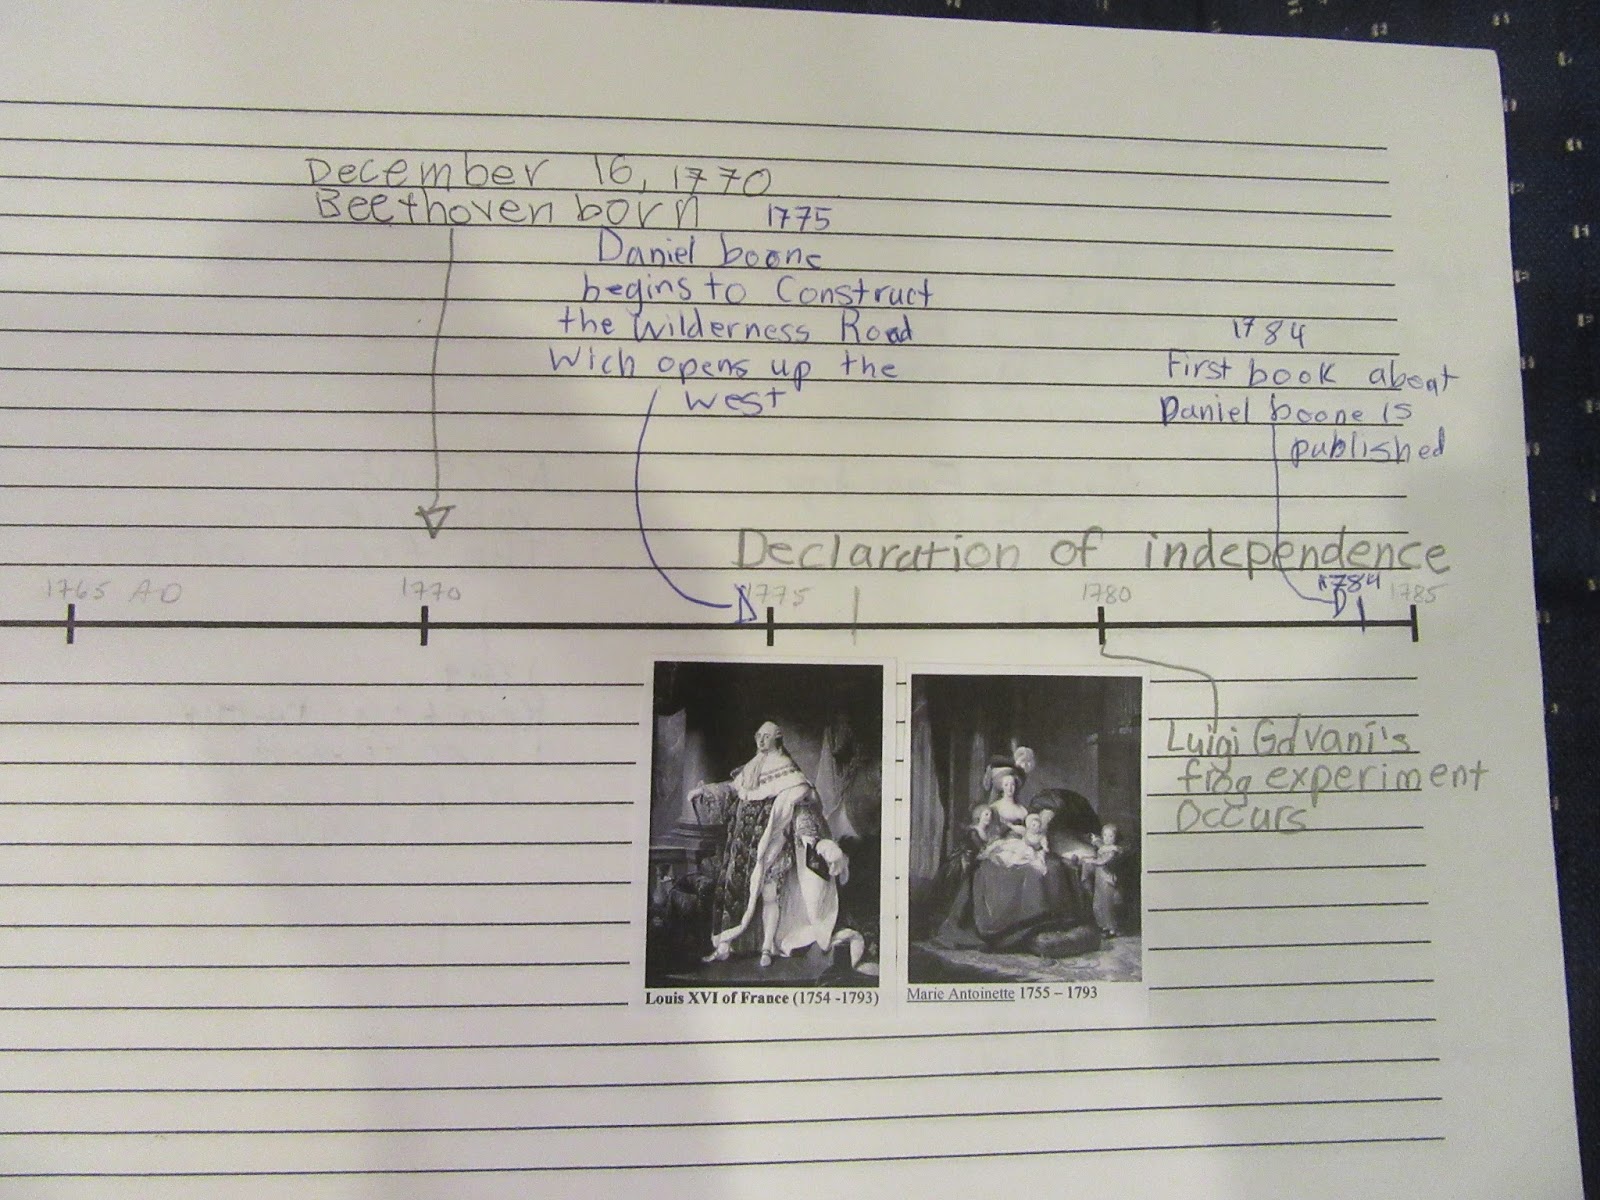 December 16, 1770
Beethoven born
1775
Daniel boone
begins to Construct
the Wilderness Road
Wich opens up the
west
1784
First book about
Daniel boone is
published
Declaration of independence
1765 AD
1770
1775
1780
1784
1785
Luigi Galvani's
frog experiment
Occurs
Louis XVI of France (1754 -1793)
Marie Antoinette 1755 – 1793